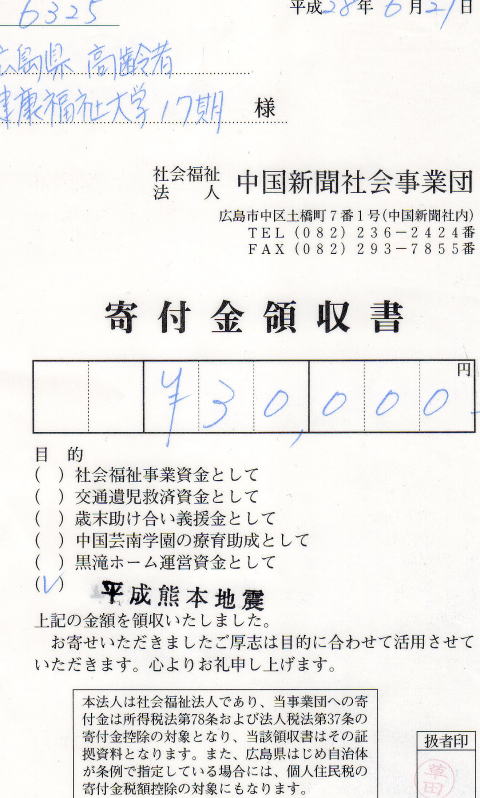 6325
平成28年6月21日
広島県 高齢者
健康福祉大学 17期 様
社会福祉法人 中国新聞社会事業団
広島市中区土橋町7番1号(中国新聞社内)
TEL(082)236−2424番
FAX(082)293−7855番
寄付金領収書
円
¥30,000.
目的
( )社会福祉事業資金として
( )交通遺児救済資金として
( )歳末助け合い義援金として
( )中国芸南学園の療育助成として
( )黒滝ホーム運営資金として
(✓) 平成熊本地震
上記の金額を領収いたしました。
お寄せいただきましたご厚志は目的に合わせて活用させて
いただきます。心よりお礼申し上げます。
本法人は社会福祉法人であり、当事業団への寄
付金は所得税法第78条および法人税法第37条の
寄付金控除の対象となり、当該領収書はその証
拠資料となります。また、広島県はじめ自治体
が条例で指定している場合には、個人住民税の
寄付金税額控除の対象にもなります。
扱者印
草田